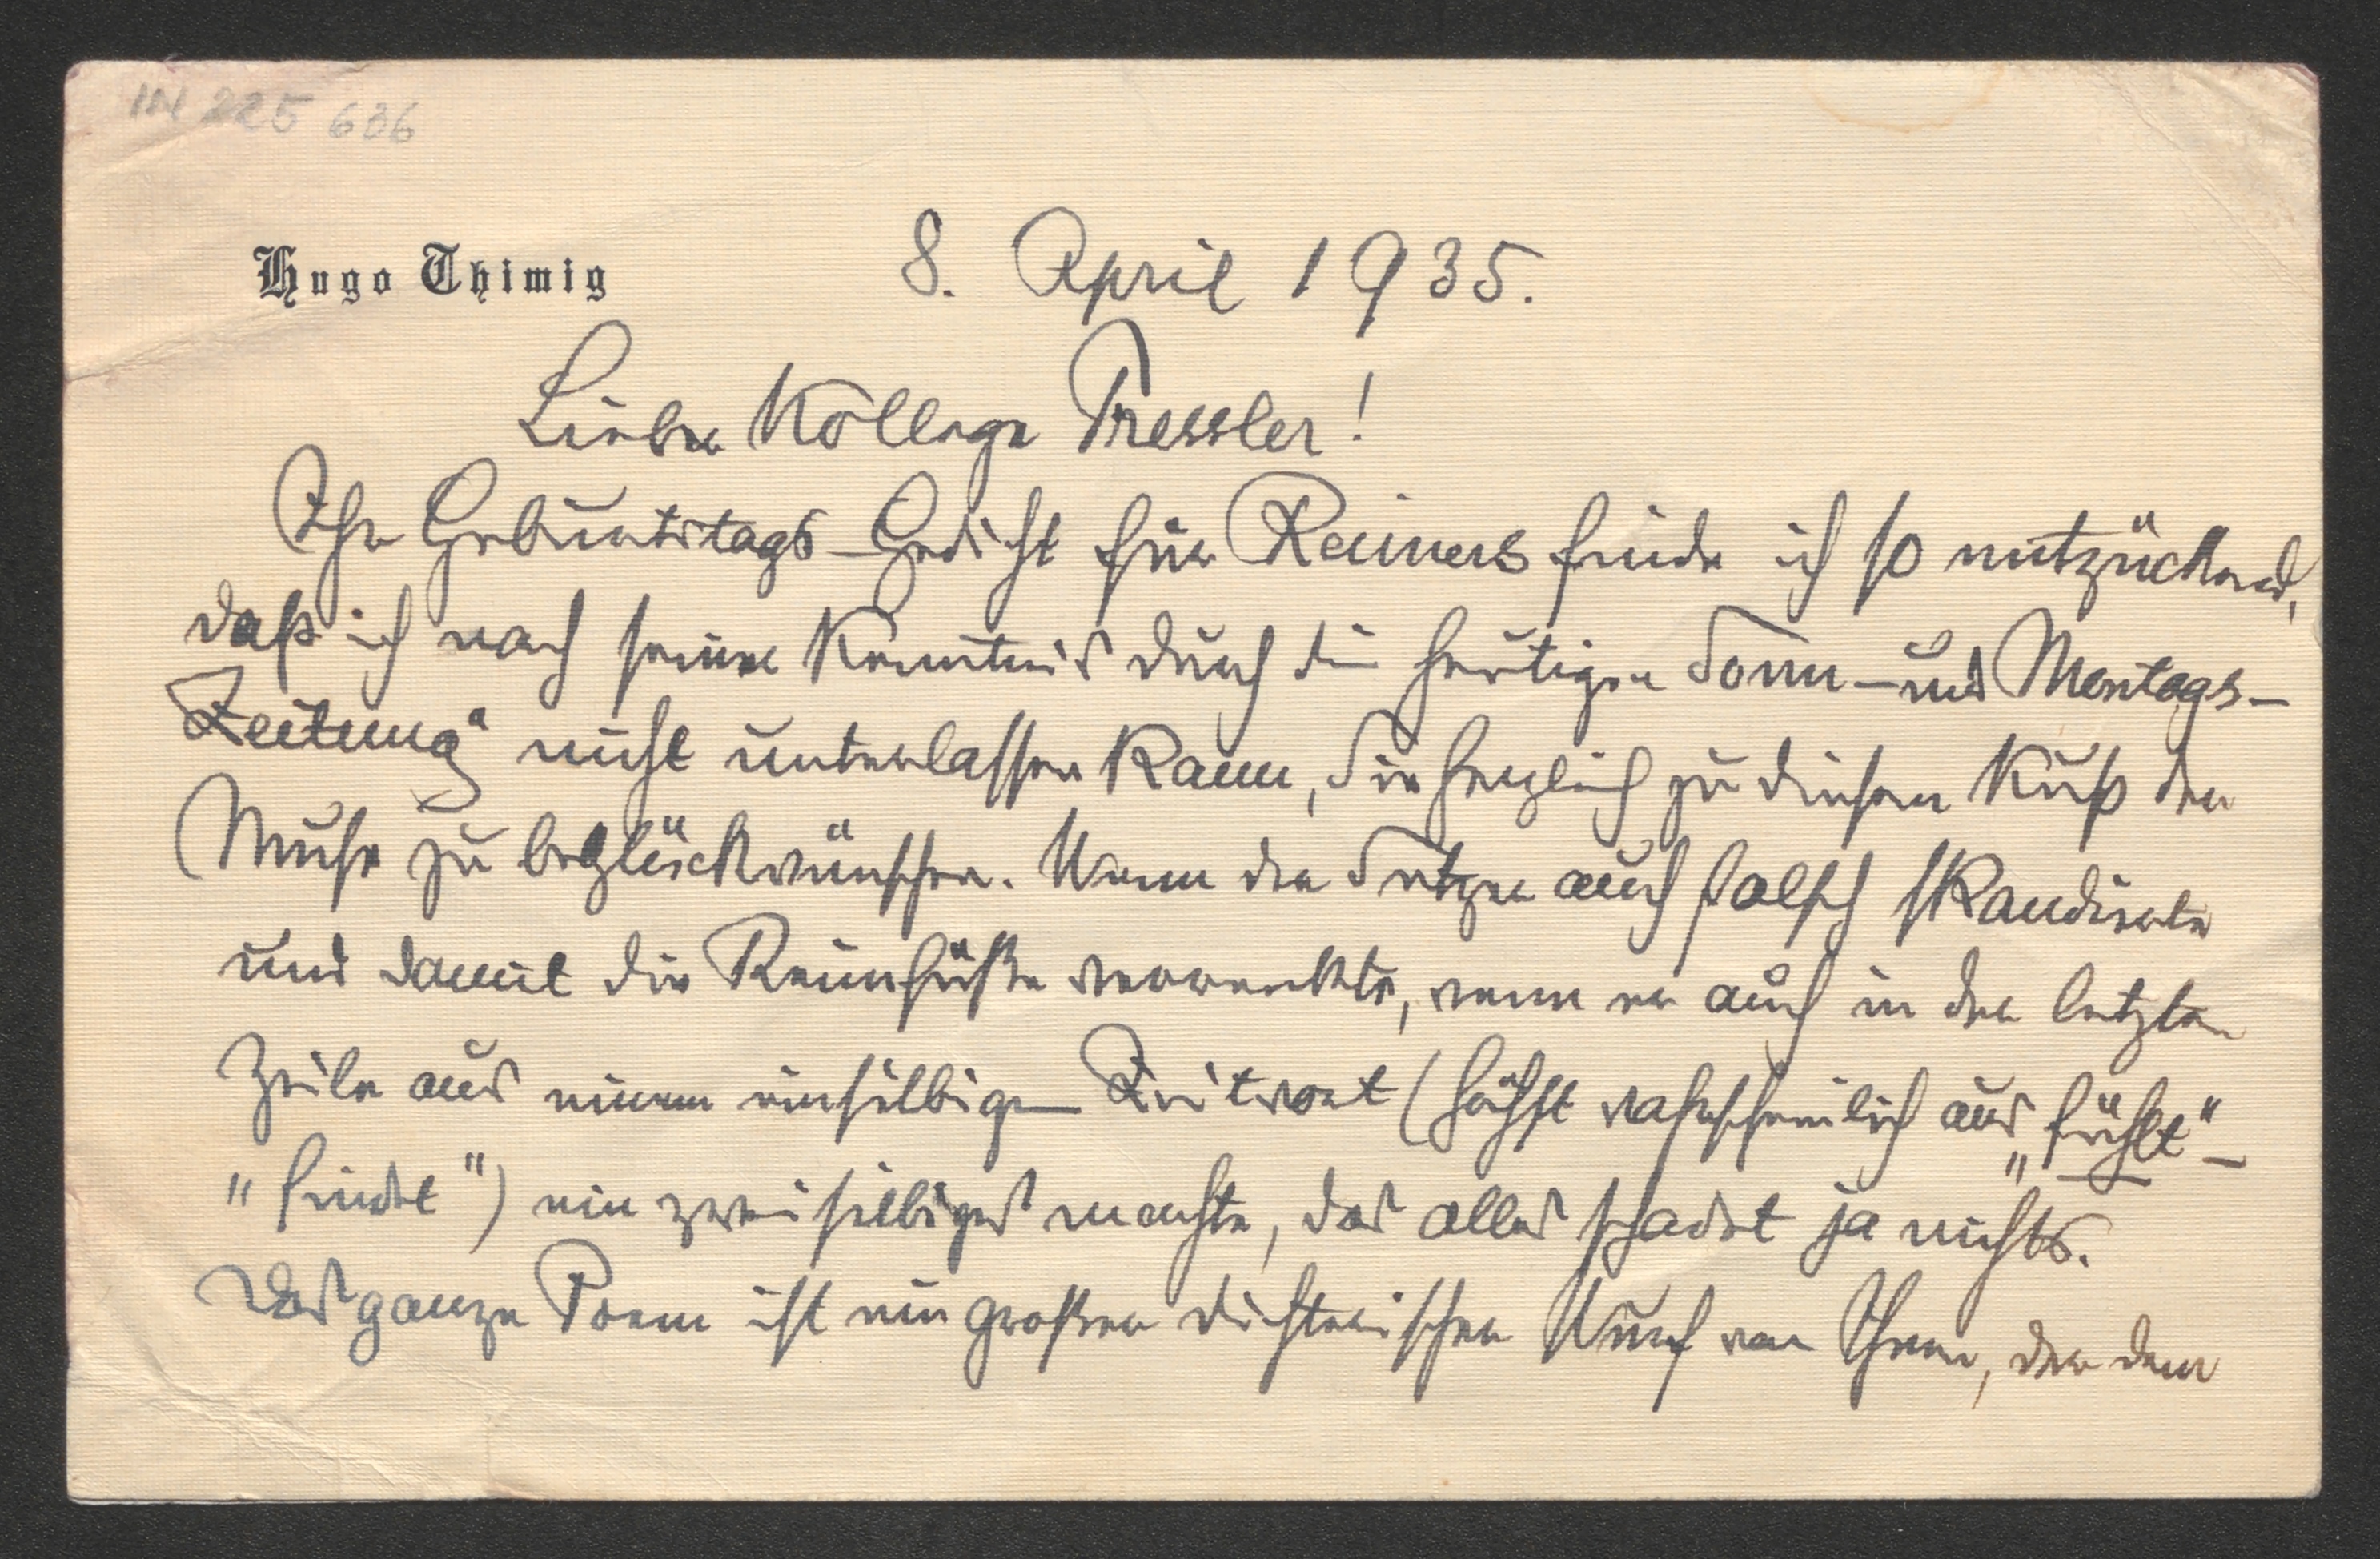 IN 225 636
Hugo Thimig
8. April 1935.
Lieber Kollege Tressler!
Ihr Geburtstags-Gedicht für Reimers finde ich so entzückend,
daß ich nach seiner Kenntnis durch die heutige Sonn- und Montags-
Zeitung" nicht unterlassen kann, Sie herzlich zu diesem Kuß der
Muse zu beglückwünschen. Wenn der Setzer auch falsch skandierte
und damit die Reimfüße verrenkte, wenn er auch in der letzten
Zeile aus einem einsilbigen Zeitwort (höchst wahrscheinlich aus „fühlt"-
"findet") ein zweisilbiges machte, das alles schadet ja nichts.
Das ganze Poem ist ein großer dichterischer Wurf von Ihnen, der dem